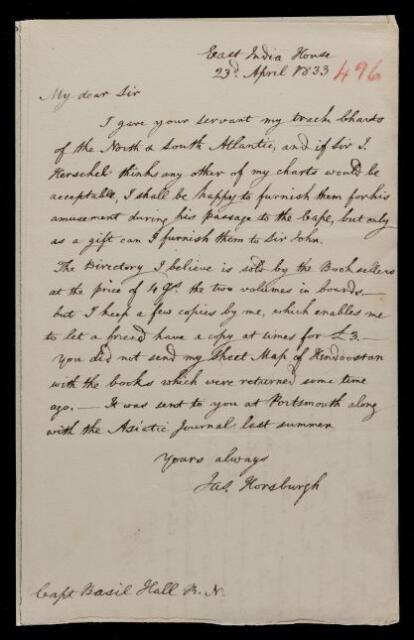 East India House
23d. April 1833
496
My dear Sir
I gave your servant my track Charts
of the North & South Atlantic, and if Sir J.
Herschel thinks any other of my charts would be
acceptable, I shall be happy to furnish them for his
amusement during his passage to the Cape, but only
as a gift can I furnish them to Sir John.
The Directory I believe is sold by the Booksellers
at the price of 4 Gs. the two volumes in boards,—
but I keep a few copies by me, which enables me
to let a friend have a copy at times for £3.—
You did not send my Sheet Map of Hindoostan
with the books which were returned some time
ago.— It was sent to you at Portsmouth along
with the Asiatic Journal last summer
Yours always
Jas. Horsburgh
Capt Basil Hall R. N.